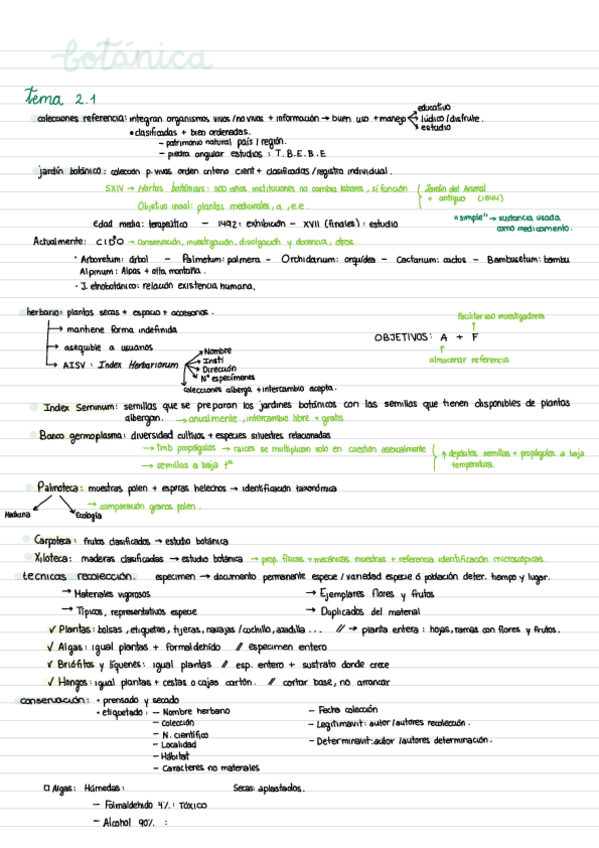 botánica
tema 2.1
colecciones referencia: integran organismos vivos/no vivos + información → buen uso + manejo educativo
lúdico/disfrute.
estudio
• clasificadas + bien ordenadas.
- patrimonio natural país / región.
- piedra angular estudios : T.B.E.B.E
jardín botánico: colección p. vivas orden criterio cient + clasificadas / registro individual.
SXIV → Hortus botánicus: 500 años instituciones no cambia labores, sí función Jardín del Arsenal
+ antiguo
Objetivo inicial: plantas medicinales, a, e.e.
Edad media: terapéutico - 1492: exhibición - XVII (finales): estudio
"simple" → sustancia usada
como medicamento.
Actualmente: CIDO → conservación, investigación, divulgación y docencia, otros
• Arboretum: árbol - Palmetum: palmera - Orchidarium: orquídea - Cactarium: cactus - Bambusetum: bambú
Alpinum: Alpas + alta montaña.
• J. etnobotánico: relación existencia humana.
herbario: plantas secas + espacio + accesorios.
→ mantiene forma indefinida
→ asequible a usuarios
→ AISV: Index Herbariorum
Nombre
Insti
Dirección
Nº especímenes
colecciones alberga + intercambio acepta.
facilitar uso investigadores
OBJETIVOS: A + F
almacenar referencia
Index Seminum: semillas que se preparan los jardines botánicos con las semillas que tienen disponibles de plantas
albergan. → anualmente, intercambio libre + gratis
Banco germoplasma: diversidad cultivos + especies silvestres relacionadas
→ tmb propágulos → raíces se multiplican solo en cuestión asexualmente
→ semillas a baja tª
↑ depósitos semillas + propágulos a baja
temperatura.
Palinoteca: muestras polen + esporas helechos → identificación taxonómica
Medicina
Ecología
→ comparación granos polen.
Carpoteca: frutos clasificados → estudio botánica
Xiloteca: maderas clasificadas → estudio botánica → prop. físicas + mecánicas muestras + referencia identificación microscópicas.
técnicas recolección. especimen → documento permanente especie / variedad especie ó población deter. tiempo y lugar.
→ Materiales vigorosos
→ Ejemplares flores y frutos
→ Típicos, representativos especie
→ Duplicados del material
✓ Plantas: bolsas, etiquetas, tijeras, navajas / cuchillo, azadilla ... // → planta entera: hojas, ramas con flores y frutos.
✓ Algas: igual plantas + formaldehído // especimen entero
✓ Briófitos y líquenes: igual plantas // esp. entero + sustrato donde crece
✓ Hongos: igual plantas + cestas o cajas cartón. // cortar base, no arrancar
conservación: • prensado y secado
• etiquetado: - Nombre herbario
- Colección
- N. científico
- Localidad
- Hábitat
- Caracteres no materiales
- Fecha colección
- Legitimavit: autor/autores recolección.
- Determinavit: autor/autores determinación.
□ Algas: Húmedas:
Secas: aplastadas.
- Folmaldehido 4%: TÓXICO
- Alcohol 90% :